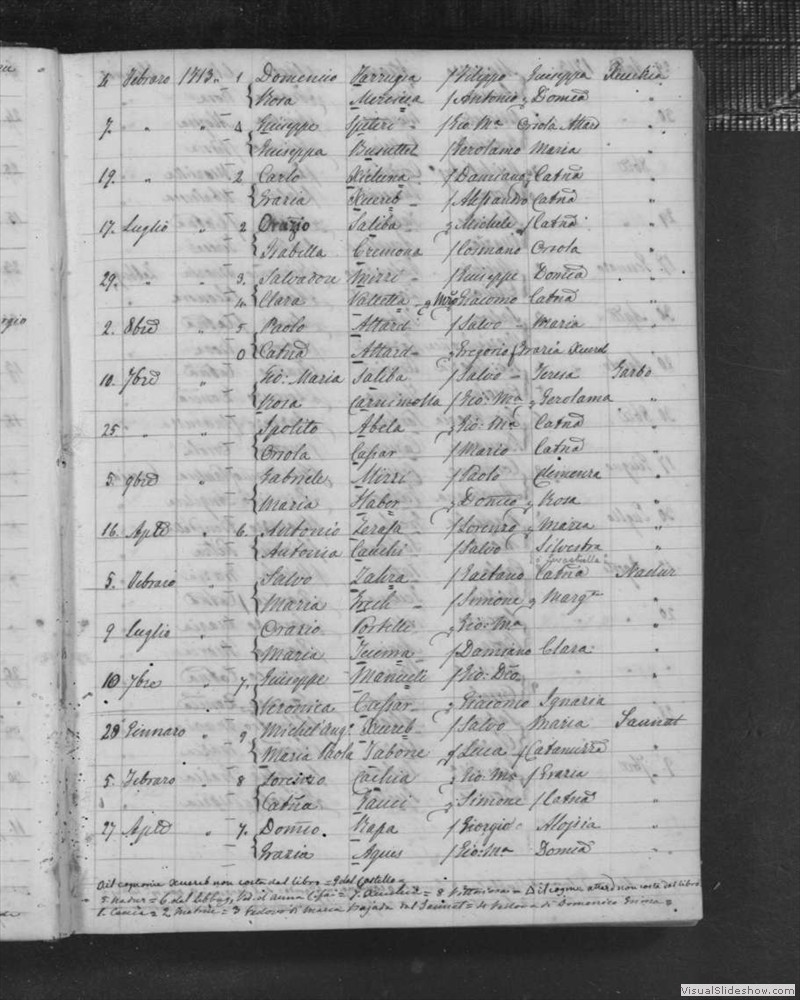 4 Febraro 1713. 1 Domenico Farrugia f Filippo Giuseppa Xeuchia
Rosa Mercieca f Antonio Domca "
7. " " Δ Giuseppe Spiteri f Gio: Ma Orsola Attard
Giuseppa Busuttil f Gerolamo Maria "
19. " 2 Carlo f Damiano Catna "
Grazia Xuereb f Alessandro Catna "
17. Luglio " 2 Orazio Saliba Michele f Catna "
Isabella Cremona f Cosmano Orsola "
29. " " 3. Salvadore Mirri f Giuseppe Domca "
4. Clara Valletta Mro Giacomo Catna "
2. 8bre " 5 Paolo Attard f Salvo Maria "
0 Catna Attard Gregorio f Grazia Xuereb
10. 7bre " Gio: Maria Saliba f Salvo Teresa Garbo
Rosa f Gio: Ma Gerolama "
25 " " Ipolito Abela Gio: Ma Catna "
Orsola Caspar f Mario Catna "
5. 9bre " Gabriele Mirri f Paolo Clemenza "
Maria Habor Domco Rosa "
16. Aple " 6. Antonio Zerafa f Lorenzo Maria "
Antonia Cauchi f Salvo Silvestra "
5. Febraio " Salvo Zahra f Gaetano Catna Nadur
Maria Grech f Simone Margta "
9 Luglio " Orazio Portelli Gio: Ma "
Maria f Damiano Clara "
10 7bre " 7. Giuseppe f Gio: Dco "
Veronica Caspar Giacomo Ignazia "
28 Gennaro " 9 Michel'Ang. Xuereb f Salvo Maria Sannat
Maria Paola Tabone Luca f Catarinella "
5. Febraro " 8 Lorenzo Cachia Gio: Ma f Grazia "
Catna Gauci Simone f Catna "
27 Aple " 7. Domco. Rapa f Giorgio Aloisia "
Grazia Agius f Gio: Ma Domca "
0 il cognome Xuereb non costa dal libro = 9 del Castello =
5 Nadur = 6 del libbro, = 8 Vittoriosa = Δ il cognome attard non costa dal libro
1. Caccia = 2 Matrice = 3 Vedovo di Maria Bajada del Sannat = 4 Vedova di Domenico =
VisualSlideshow.com